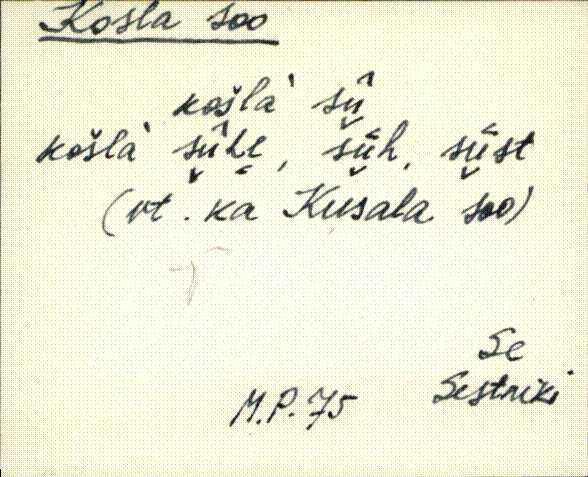 Kosla soo
košla` sū̬
košla` sū̬he, sūh, sūst
(vt. ka Kusala soo)
Se
M.P. 75 Sestniki